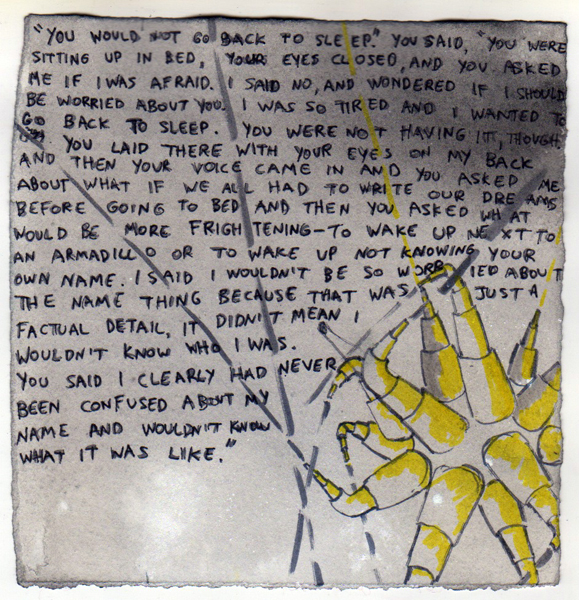 "YOU WOULD NOT GO BACK TO SLEEP." YOU SAID, "YOU WERE
SITTING UP IN BED, YOUR EYES CLOSED, AND YOU ASKED
ME IF I WAS AFRAID. I SAID NO, AND WONDERED IF I SHOULD
BE WORRIED ABOUT YOU. I WAS SO TIRED AND I WANTED TO
GO BACK TO SLEEP. YOU WERE NOT HAVING IT, THOUGH,
YOU LAID THERE WITH YOUR EYES ON MY BACK
AND THEN YOUR VOICE CAME IN AND YOU ASKED ME
ABOUT WHAT IF WE ALL HAD TO WRITE OUR DREAMS
BEFORE GOING TO BED AND THEN YOU ASKED WHAT
WOULD BE MORE FRIGHTENING—TO WAKE UP NEXT TO
AN ARMADILLO OR TO WAKE UP NOT KNOWING YOUR
OWN NAME. I SAID I WOULDN'T BE SO WORRIED ABOUT
THE NAME THING BECAUSE THAT WAS JUST A
FACTUAL DETAIL, IT DIDN'T MEAN I
WOULDN'T KNOW WHO I WAS.
YOU SAID I CLEARLY HAD NEVER
BEEN CONFUSED ABOUT MY
NAME AND WOULDN'T KNOW
WHAT IT WAS LIKE."